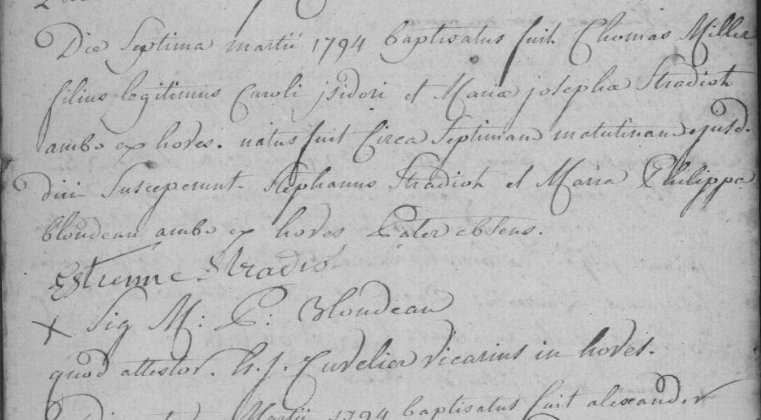 Die Septima martii 1794 baptisatus fuit Thomas Miller
filius legitimus Caroli jsidori et Mariæ josephæ Stradiot
ambo ex hoves. natus fuit Circa Septimam matutinam ejusd.
diei Susceperunt Stephanus Stradiot et Maria Philippa
blondeau ambo ex hoves Pater absens.
Estienne Stradiot
x Sig M: P: Blondeau
quod attestor. h. j. Cuvelier vicarius in hoves.
Martii 1794 baptisatus fuit alexander